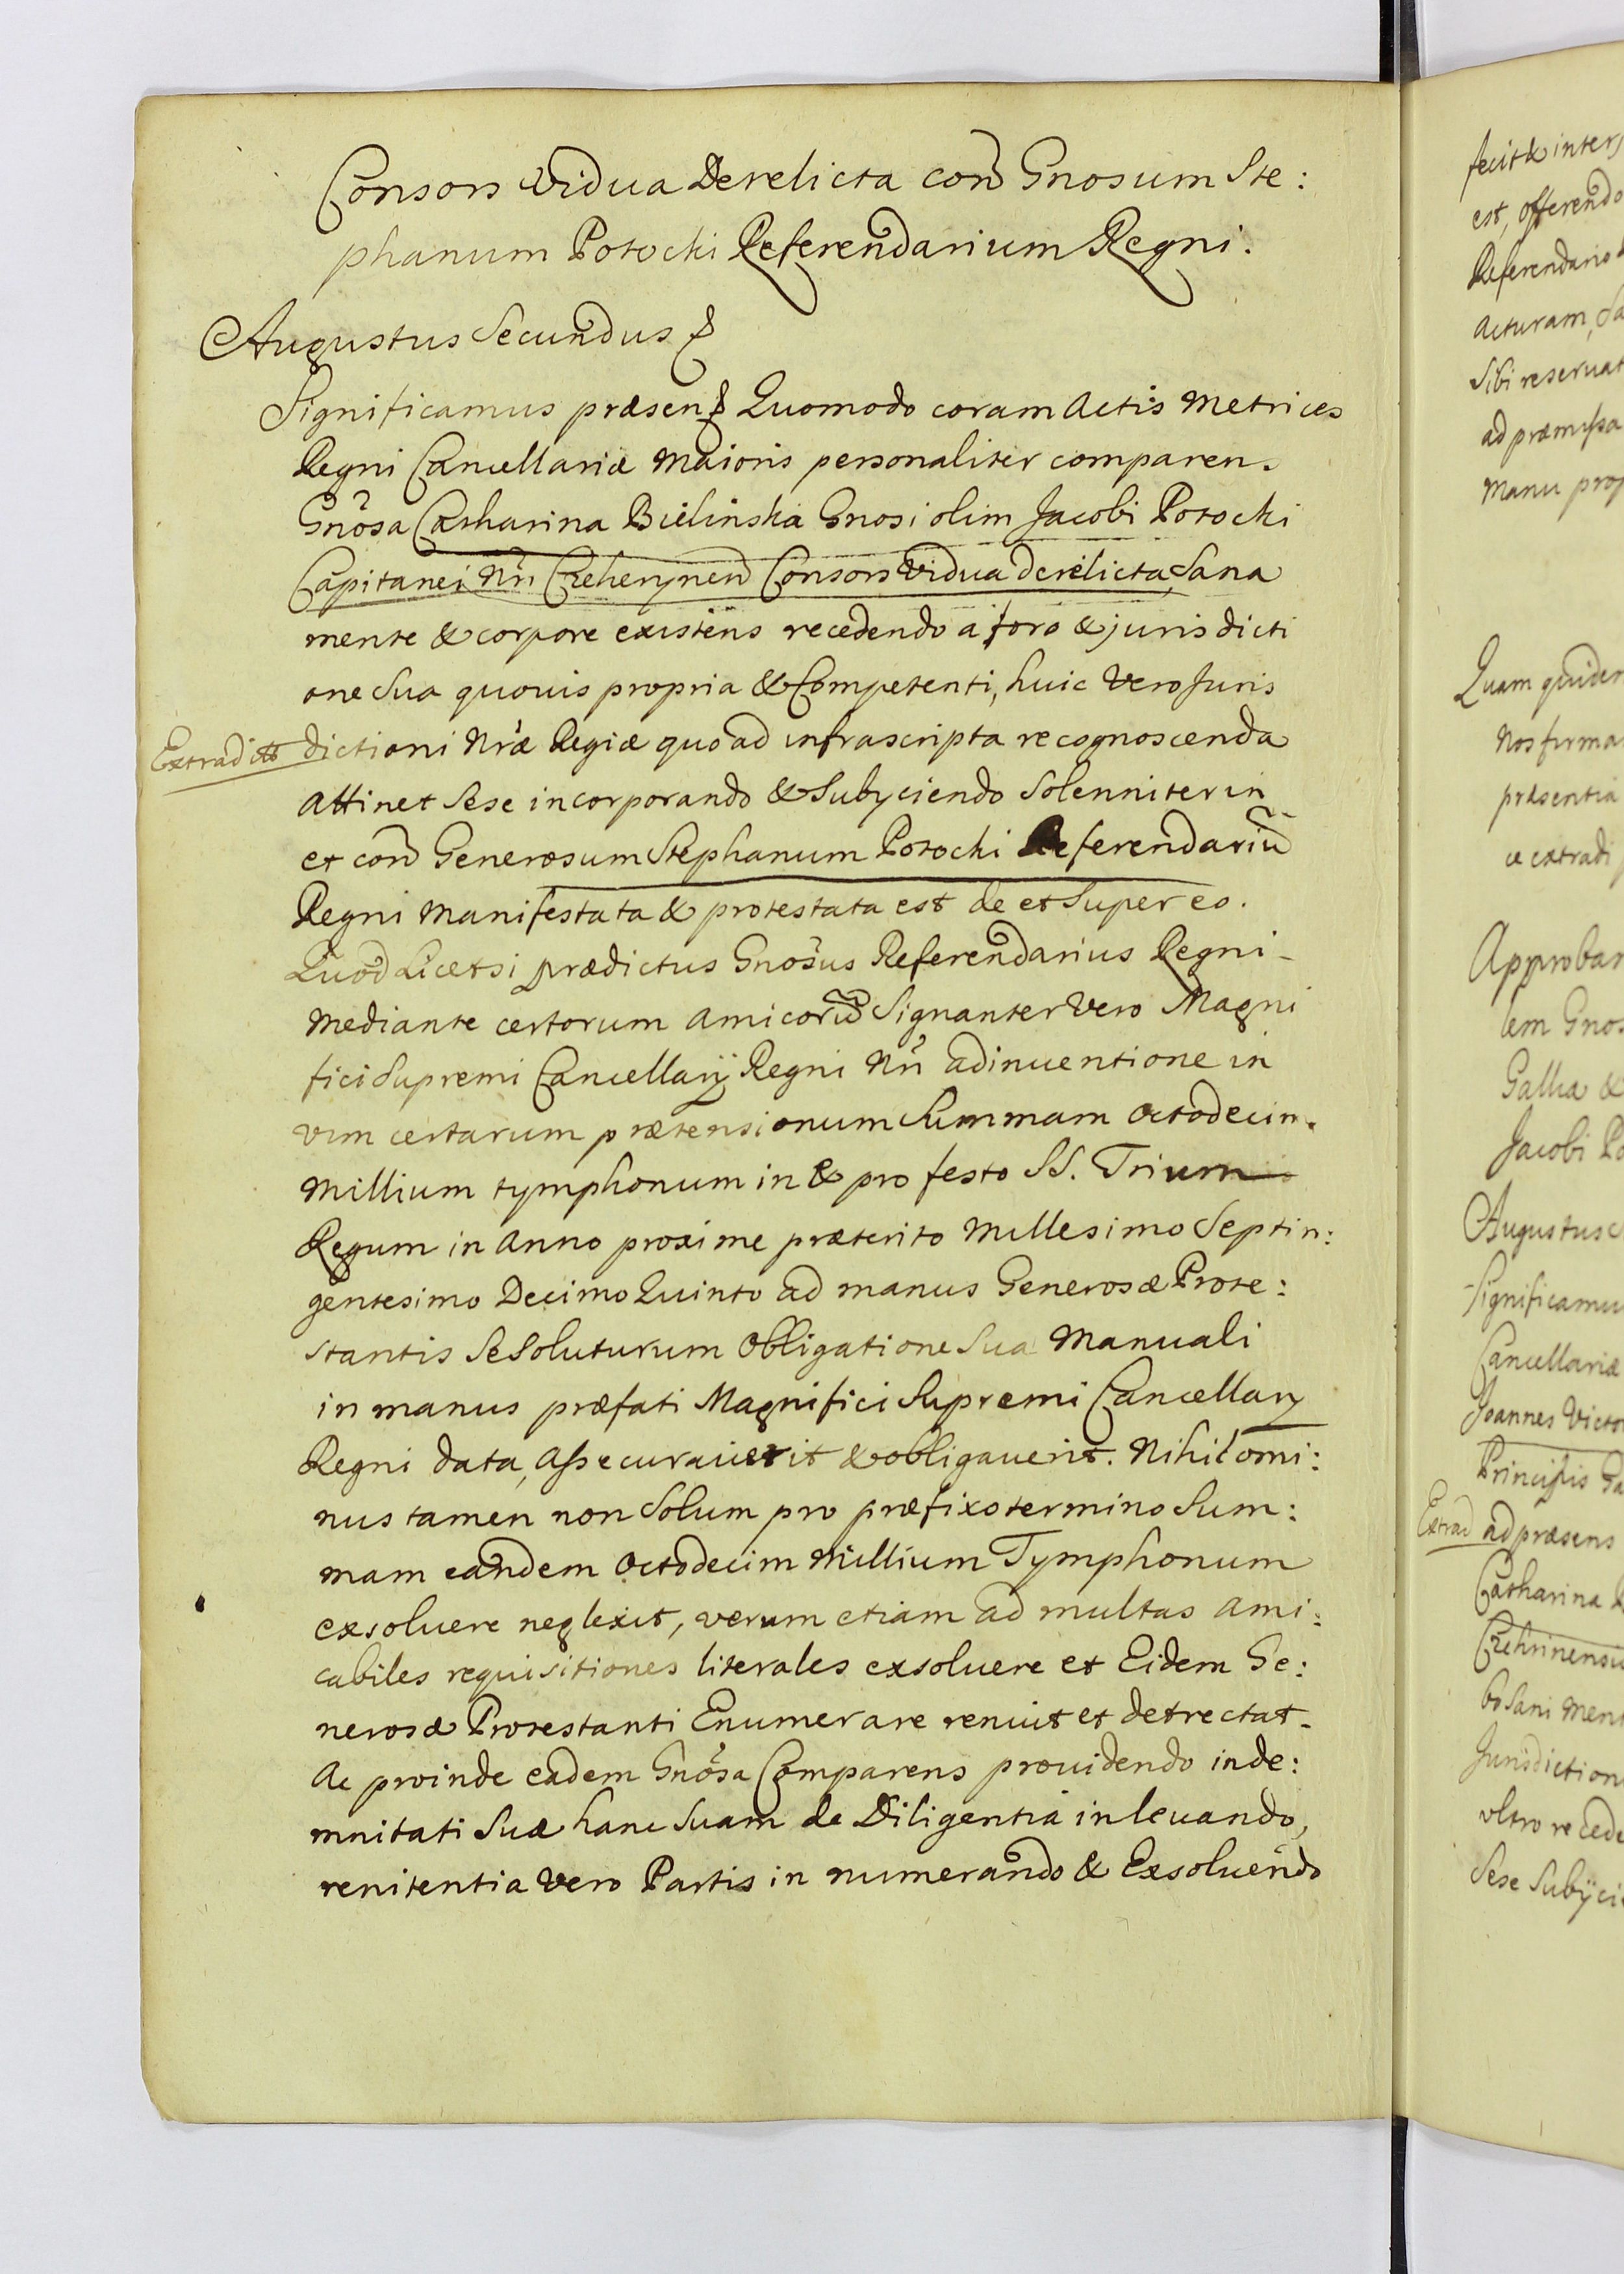 Consors Vidua Derelicta con Gnosum Ste:
phanum Potocki Referendarium Regni.
Augustus Secundus &
Significamus præsen& Quomodo coram Actis Metrices
Regni Cancellariæ Maioris personaliter comparen.
Gnosa Catharina Bielinska Gnosi olim Jacobi Potocki
Capitanei Nri Czeherynen Consors Vidua derelicta, Sana
mente & corpore existens recedendo a foro & jurisdicti
one Sua quouis propria & Competenti, huic Vero Juris
Extradit
dictioni Nræ Regiæ quo ad infrascripta recognoscenda
attinet Sese incorporando & Subyciendo Solenniter in
et con Generosum Stephanum Potocki Referendariu
Regni Manifestata & protestata est de et Super eo.
Quod Licetsi prædictus Gnosus Referendarius Regni -
Mediante certorum Amicoru Signanter Vero Magni
fici Supremi Cancellarij Regni Nri adinuentione in
vim certarum prætensionum Summam Octodecim.
Millium tymphonum in & pro festo SS. Trium
Regum in Anno proxime præterito Millesimo Septin:
gentesimo Decimo Quinto ad manus Generosæ Prote:
stantis Se Soluturum Obligatione Sua Manuali
in manus præfati Magnifici Supremi Cancellary
Regni data, Assecurauerit & obligauerit. Nihilomi:
nus tamen non Solum pro præfixo termino Sum:
mam eandem Octodecim Millium Tymphonum
exsoluere neglexit, verum etiam ad multas ami:
cabiles requisitiones literales exsoluere et Eidem Ge:
nerosæ Protestanti Enumerare renuit et detrectat.
Ac proinde eadem Gnosa Comparens prouidendo inde:
mnitati Suæ hanc Suam de Diligentia in leuando,
renitentia Vero Partis in numerando & Exsoluendo
fecit & inter
est, offerendo
Referendario
Acturam, Sa
Sibi reseruat
ad præmissa
Manu prop
Quam quidem
Nos firma
præsentia
ce extradi
Approbat
lem Gnos
Gallia &
Jacobi Po
Augustus
Significamu
Cancellariæ
Joannes Victo
Principis Ga
Extrad
ad præsens
Catharina
Czehrinensis
bo Sani Men
Jurisdiction
vltro recede
Sese Subijci